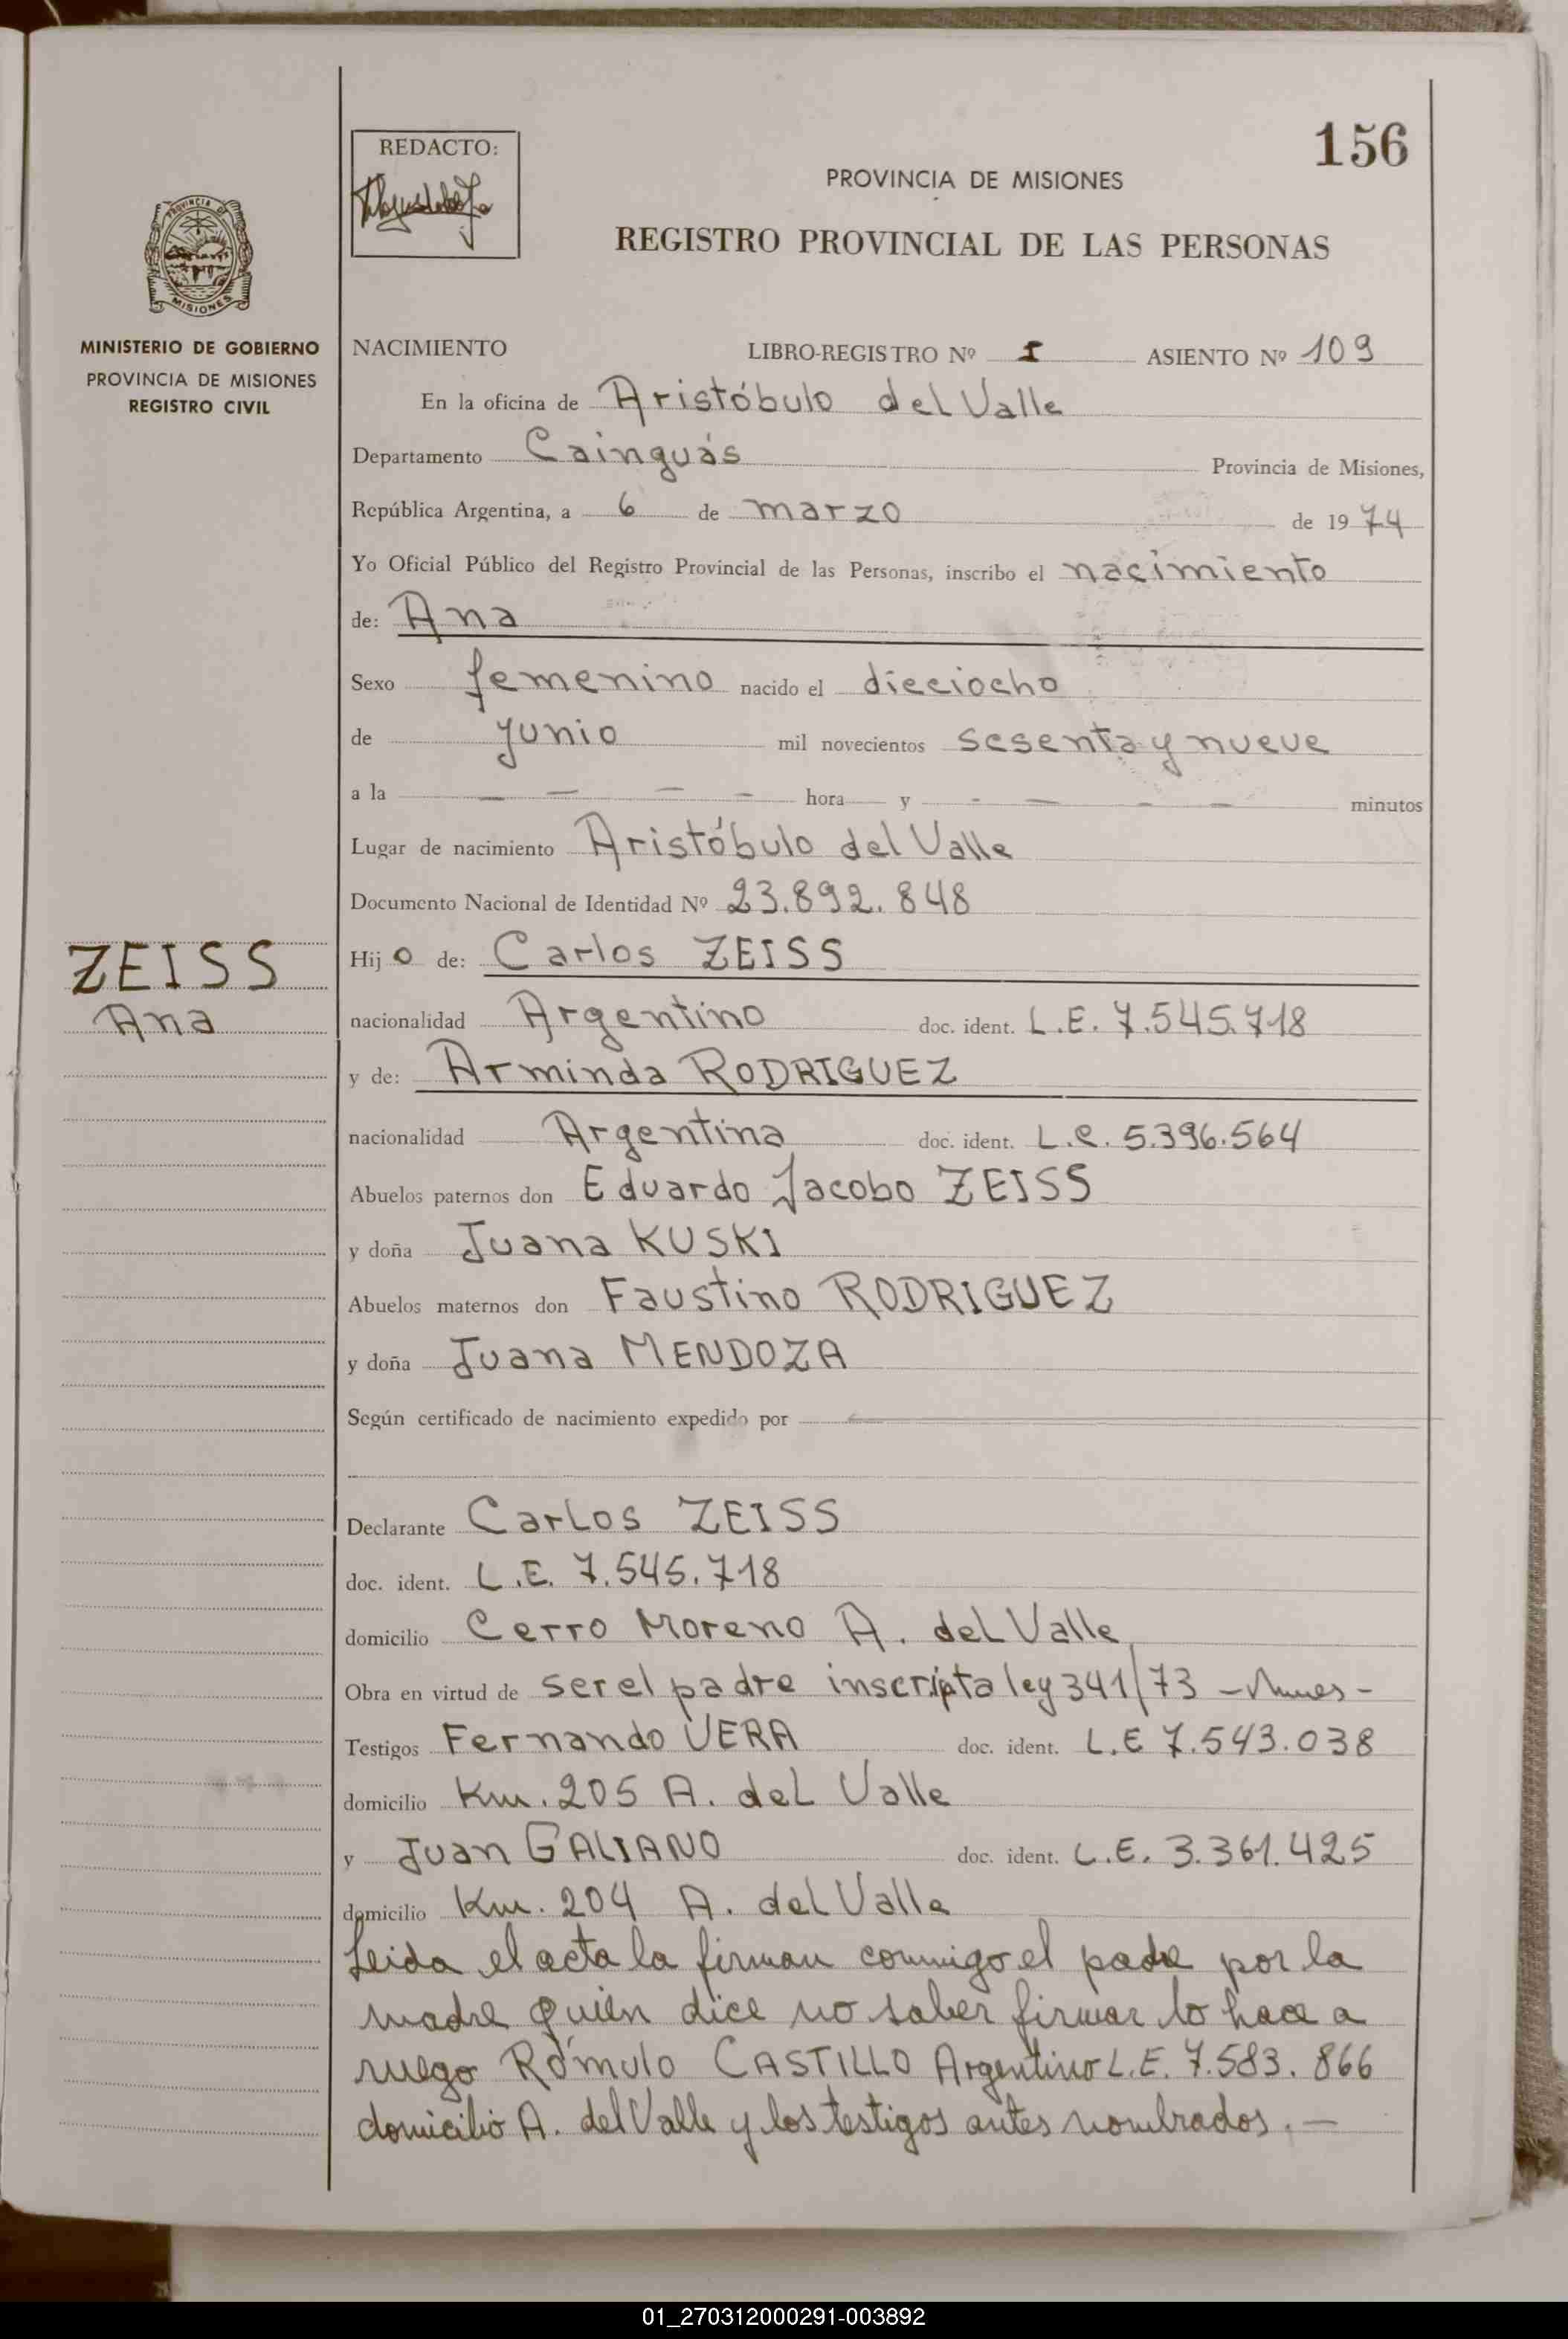 156
REDACTO:
PROVINCIA DE MISIONES
REGISTRO PROVINCIAL DE LAS PERSONAS
PROVINCIA DE
MISIONES
MINISTERIO DE GOBIERNO
PROVINCIA DE MISIONES
REGISTRO CIVIL
NACIMIENTO LIBRO-REGISTRO Nº I ASIENTO Nº 109
En la oficina de Aristóbulo del Valle
Departamento Cainguás Provincia de Misiones,
República Argentina, a 6 de marzo de 1974
Yo Oficial Público del Registro Provincial de las Personas, inscribo el nacimiento
de: Ana
Sexo femenino nacido el dieciocho
de junio mil novecientos sesenta y nueve
a la — — — — hora — y - — - — minutos
Lugar de nacimiento Aristóbulo del Valle
Documento Nacional de Identidad Nº 23.892.848
ZEISS
Ana
Hijo de: Carlos ZEISS
nacionalidad Argentino doc. ident. L.E. 7.545.718
y de: Arminda RODRIGUEZ
nacionalidad Argentina doc. ident. L.C. 5.396.564
Abuelos paternos don Eduardo Jacobo ZEISS
y doña Juana KUSKI
Abuelos maternos don Faustino RODRIGUEZ
y doña Juana MENDOZA
Según certificado de nacimiento expedido por
Declarante Carlos ZEISS
doc. ident. L.E. 7.545.718
domicilio Cerro Moreno A. del Valle
Obra en virtud de ser el padre inscripta ley 341/73
Testigos Fernando VERA doc. ident. L.E 7.543.038
domicilio Km. 205 A. del Valle
y Juan GALIANO doc. ident. L.E. 3.361.425
domicilio Km. 204 A. del Valle
Leida el acta la firman conmigo el padre por la
madre quién dice no saber firmar lo hace a
ruego Rómulo CASTILLO Argentino L.E. 7.583.866
domicilio A. del Valle y los testigos antes nombrados. —
01_270312000291-003892